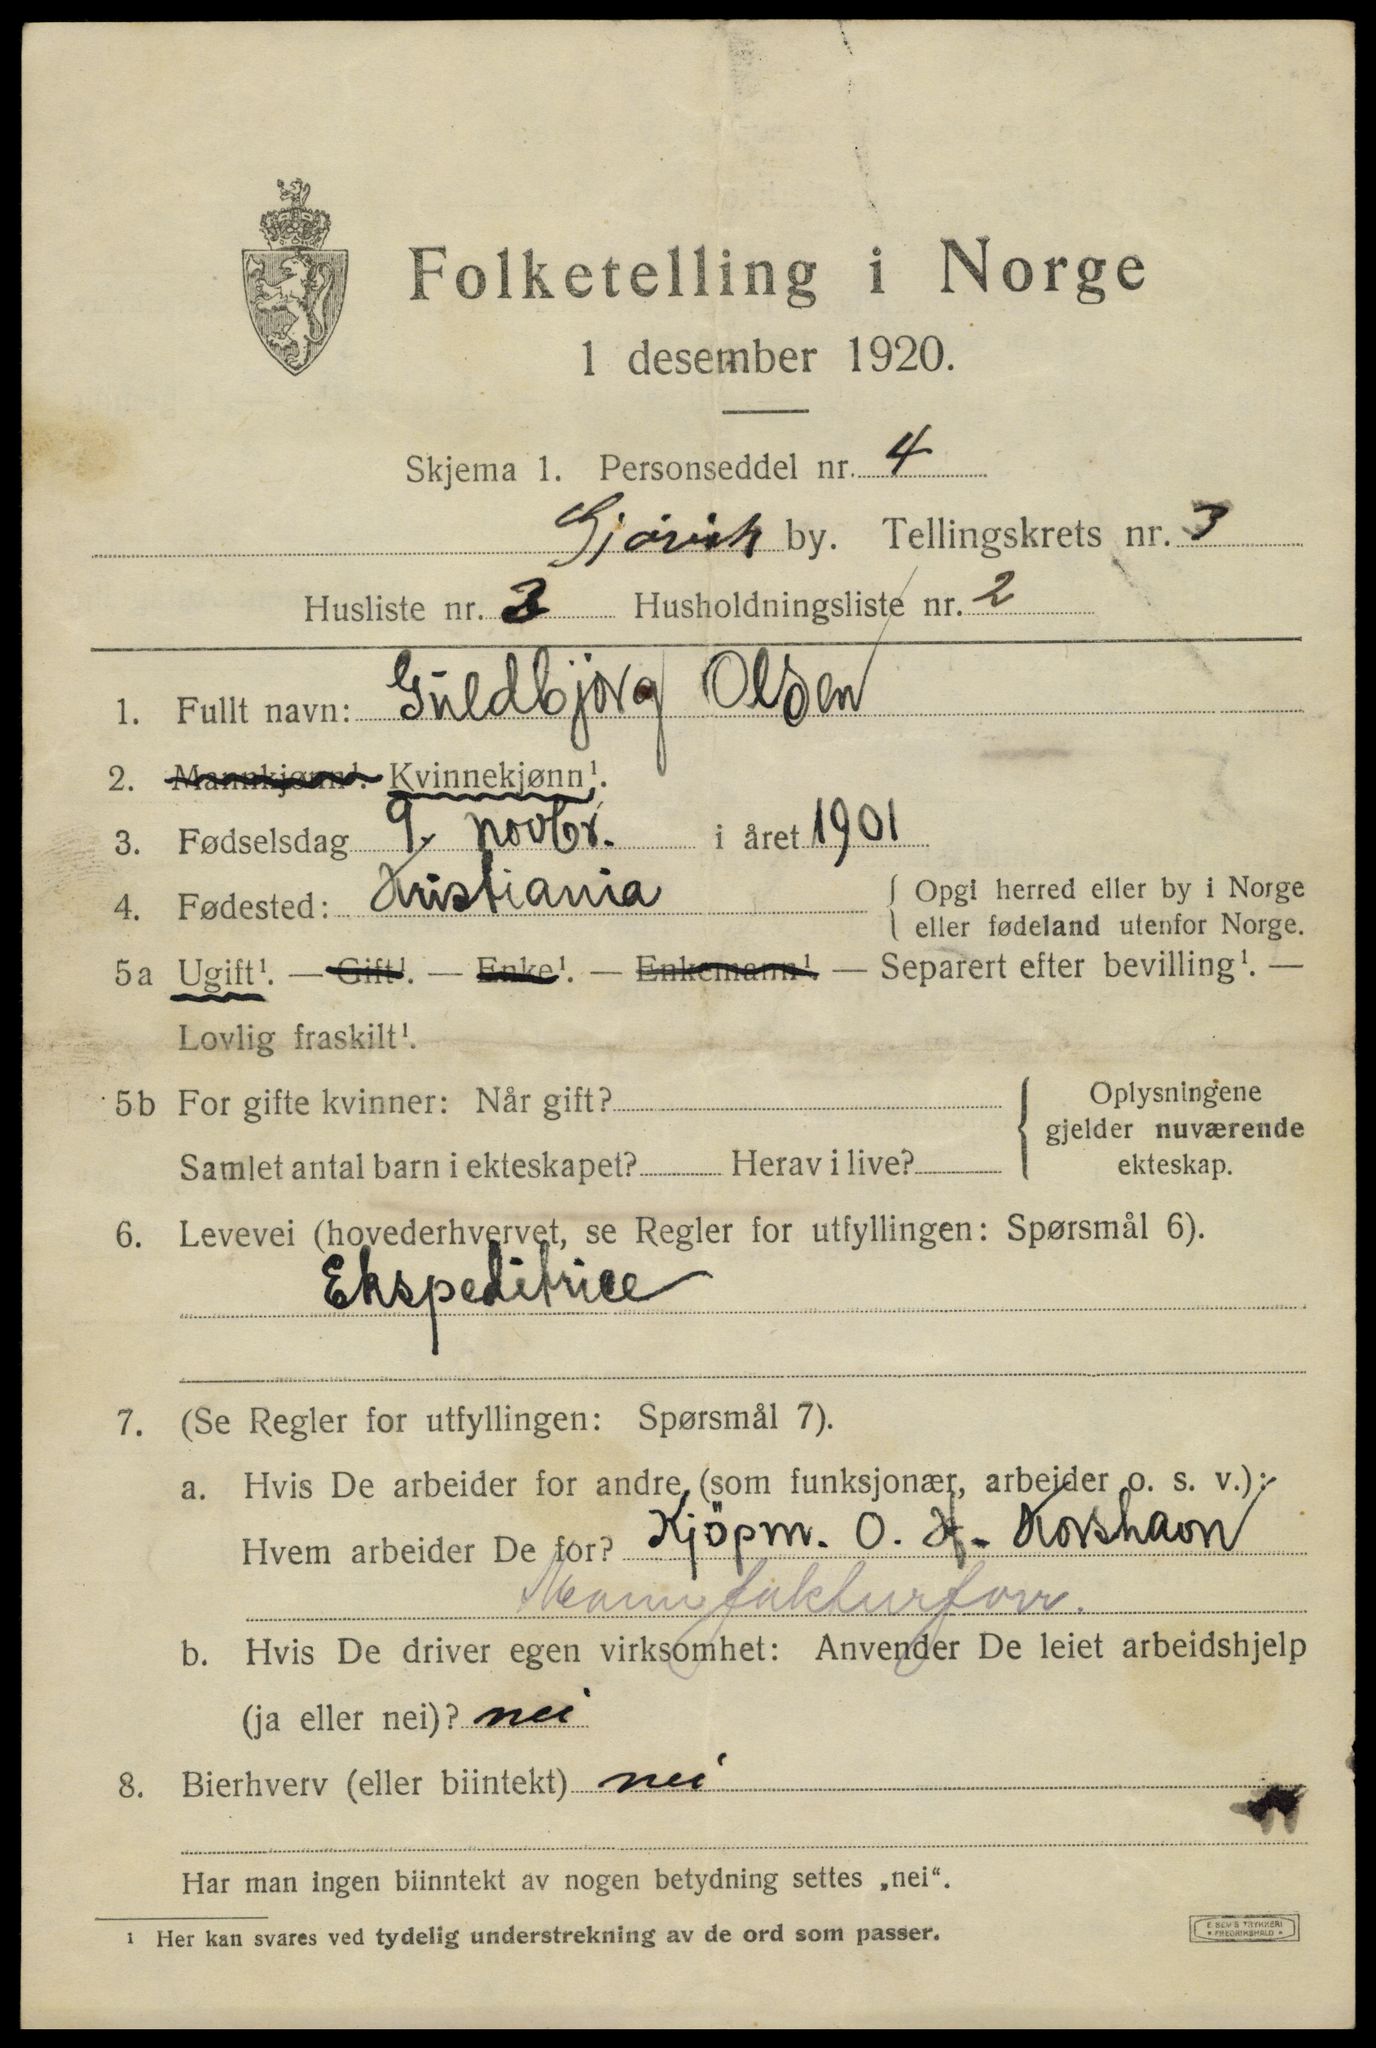 Folketelling i Norge
1 desember 1920.
Skjema 1. Personseddel nr. 4
Gjøvik by. Tellingskrets nr. 3
Husliste nr. 3 Husholdningsliste nr. 2
1. Fullt navn: Guldbjörg Olsen
2. Mannkjønn¹. Kvinnekjønn¹.
3. Fødselsdag 9. novbr. i året 1901
4. Fødested: Kristiania { Opgi herred eller by i Norge
eller fødeland utenfor Norge.
5a Ugift¹. — Gift¹. — Enke¹. — Enkemann¹. — Separert efter bevilling¹. —
Lovlig fraskilt¹.
5b For gifte kvinner: Når gift? { Oplysningene
gjelder nuværende
Samlet antal barn i ekteskapet? Herav i live? ekteskap.
6. Levevei (hovederhvervet, se Regler for utfyllingen: Spørsmål 6).
Ekspeditrice
7. (Se Regler for utfyllingen: Spørsmål 7).
a. Hvis De arbeider for andre (som funksjonær, arbeider o. s. v.):
Hvem arbeider De for? Kjöpm. O. H. Korshavn
Manufakturforr.
b. Hvis De driver egen virksomhet: Anvender De leiet arbeidshjelp
(ja eller nei)? nei
8. Bierhverv (eller biintekt) nei
Har man ingen biinntekt av nogen betydning settes „nei“.
¹ Her kan svares ved tydelig understrekning av de ord som passer.
E. SEM'S TRYKKERI
• FREDRIKSHALD •